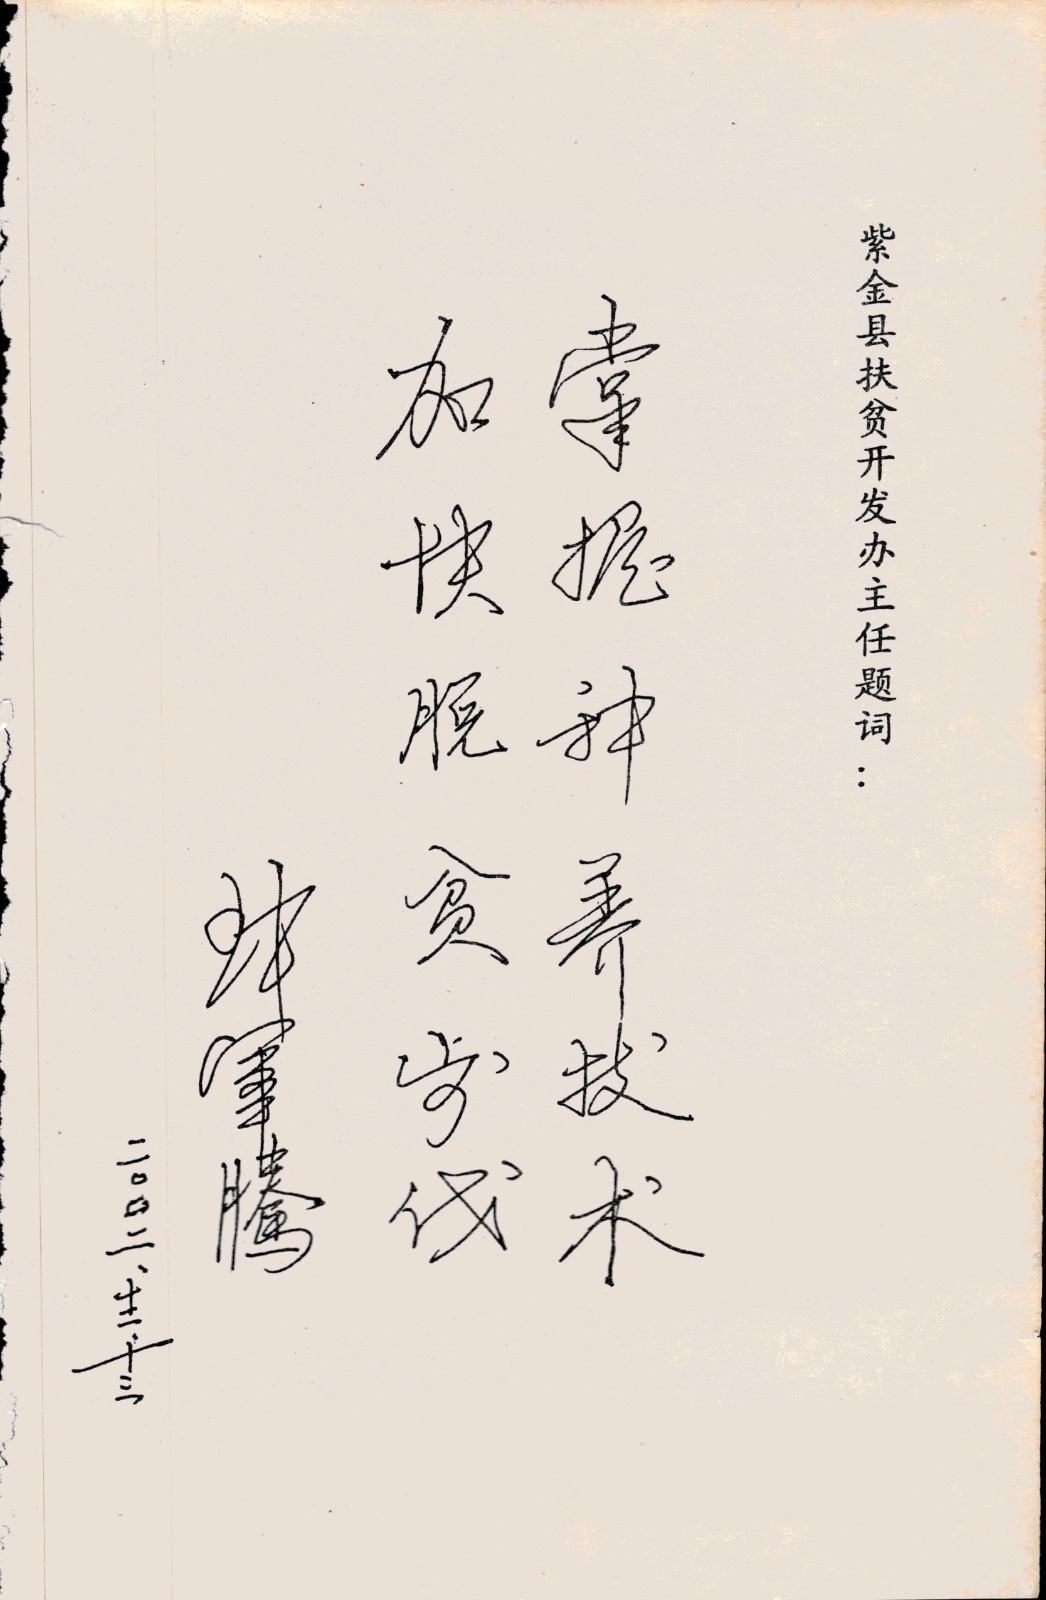 紫金县扶贫开发办主任题词：
掌握种养技术
加快脱贫步伐
二〇〇二、十二、十三